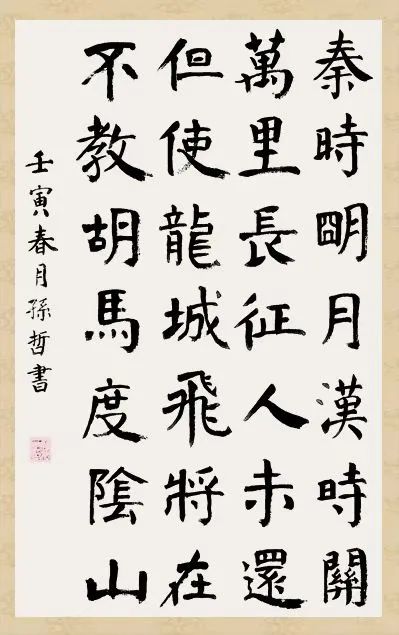 秦時明月漢時關
萬里長征人未還
但使龍城飛將在
不教胡馬度陰山
壬寅春月孫哲書